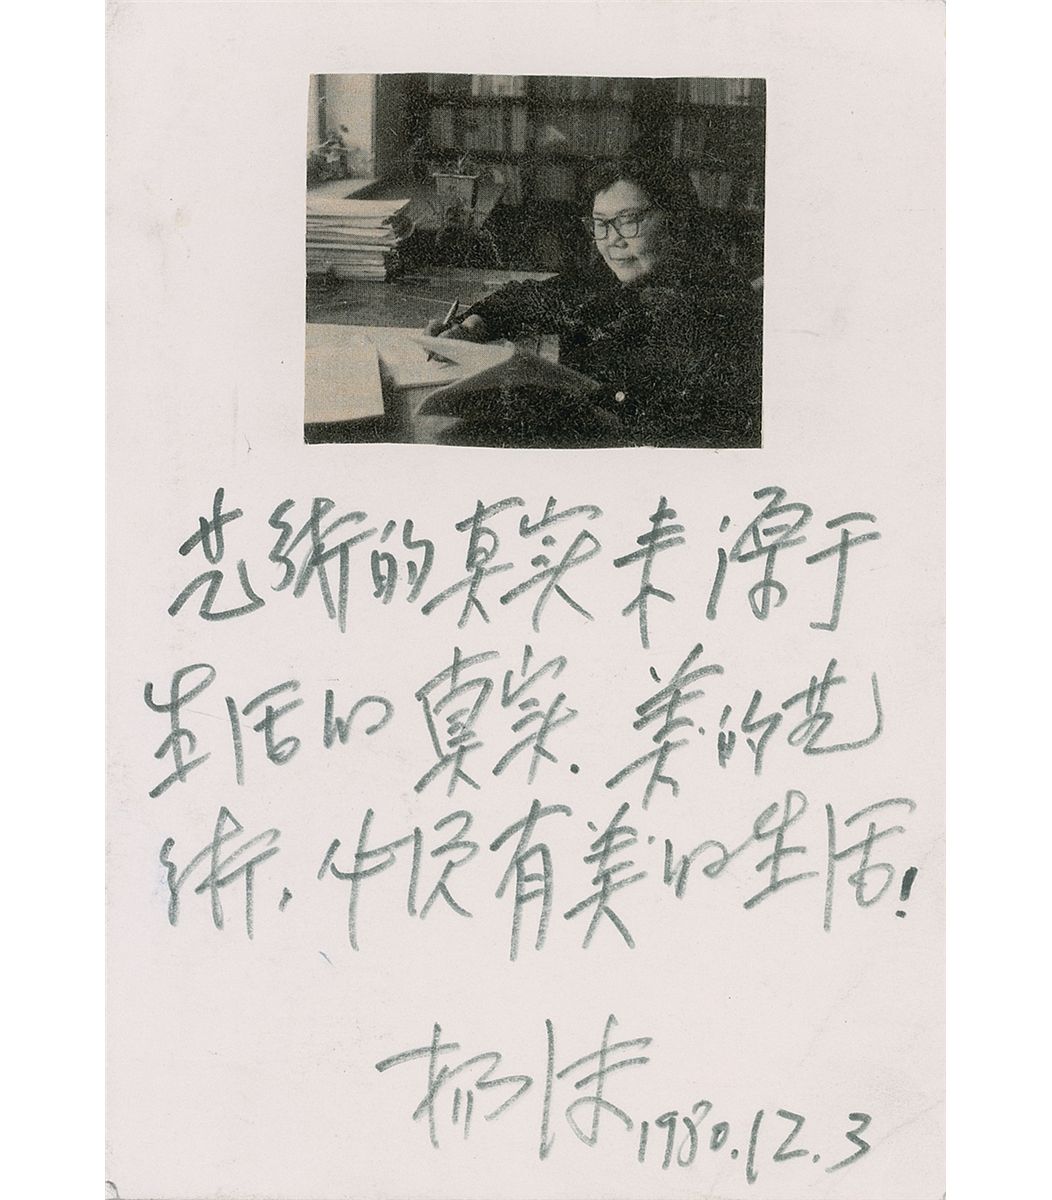 艺術的真实来源于
生活的真实.美的艺
術,必须有美的生活!
杨沫1980.12.3